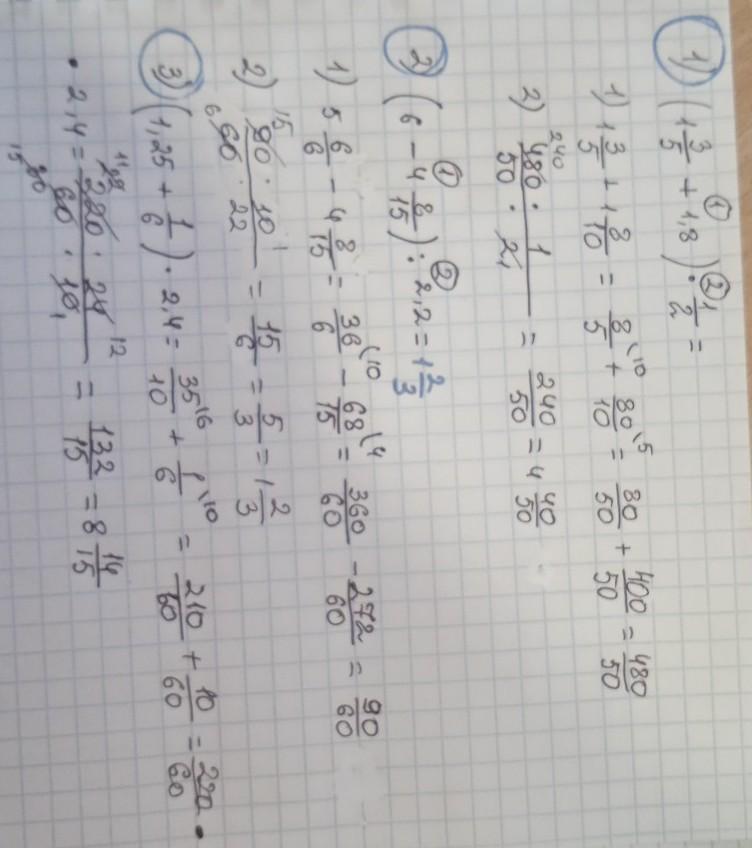 1) (1 3/5 + 1,8) : 1/2 =
① ②
1) 1 3/5 + 1 8/10 = 8/5 \10 + 80/10 \5 = 80/50 + 400/50 = 480/50
2) 480/50 · 1/2 = 240/50 = 4 40/50
240 1
2) (6 - 4 8/15) : 2,2 = 1 2/3
① ②
1) 5 6/6 - 4 8/15 = 36/6 \10 - 68/15 \4 = 360/60 - 272/60 = 90/60
2) 90/60 · 10/22 = 15/6 = 5/3 = 1 2/3
15 1 6
3) (1,25 + 1/6) · 2,4 = 35/10 \6 + 1/6 \10 = 210/60 + 10/60 = 220/60 ·
· 2,4 = 220/60 · 24/10 = 132/15 = 8 14/15
11 22 12 15 30 1